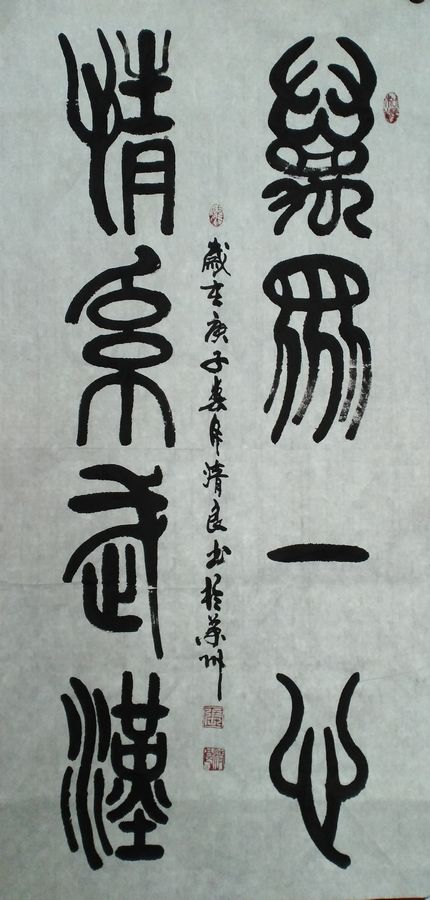 萬眾一心
情系武漢
歲在庚子春月清良书於州